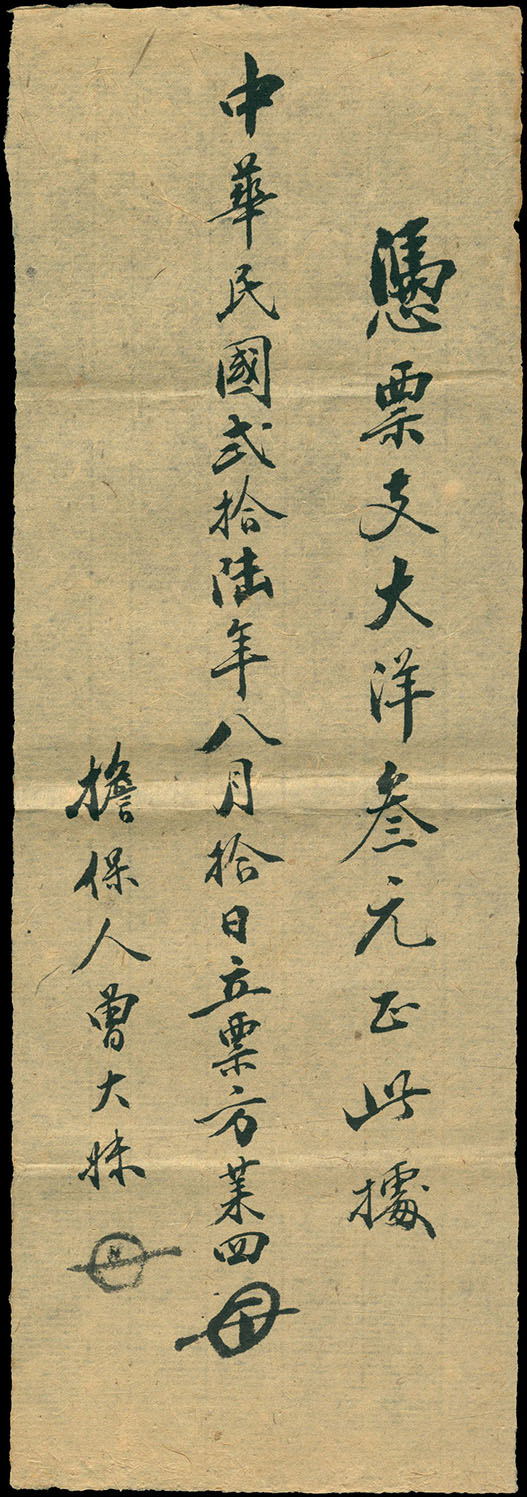 憑票支大洋叁元正此據
中華民國弍拾陸年八月拾日立票方葉四
擔保人曾大妹